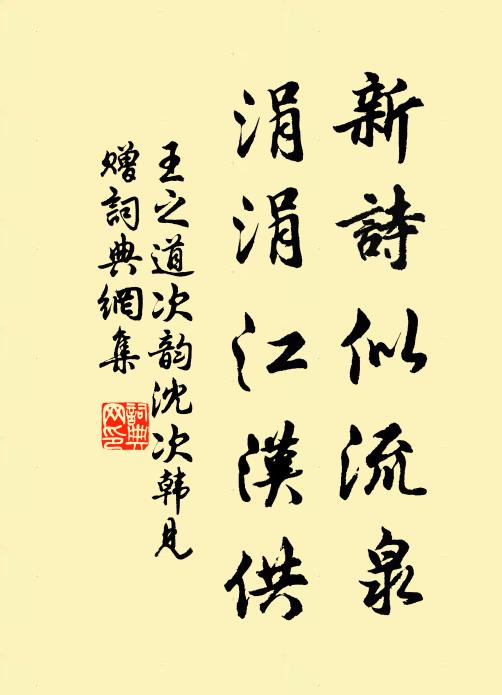 新詩似流泉
涓涓江漢供
王之道次韵沈次韩見
贈詞典網集
詞典
网印